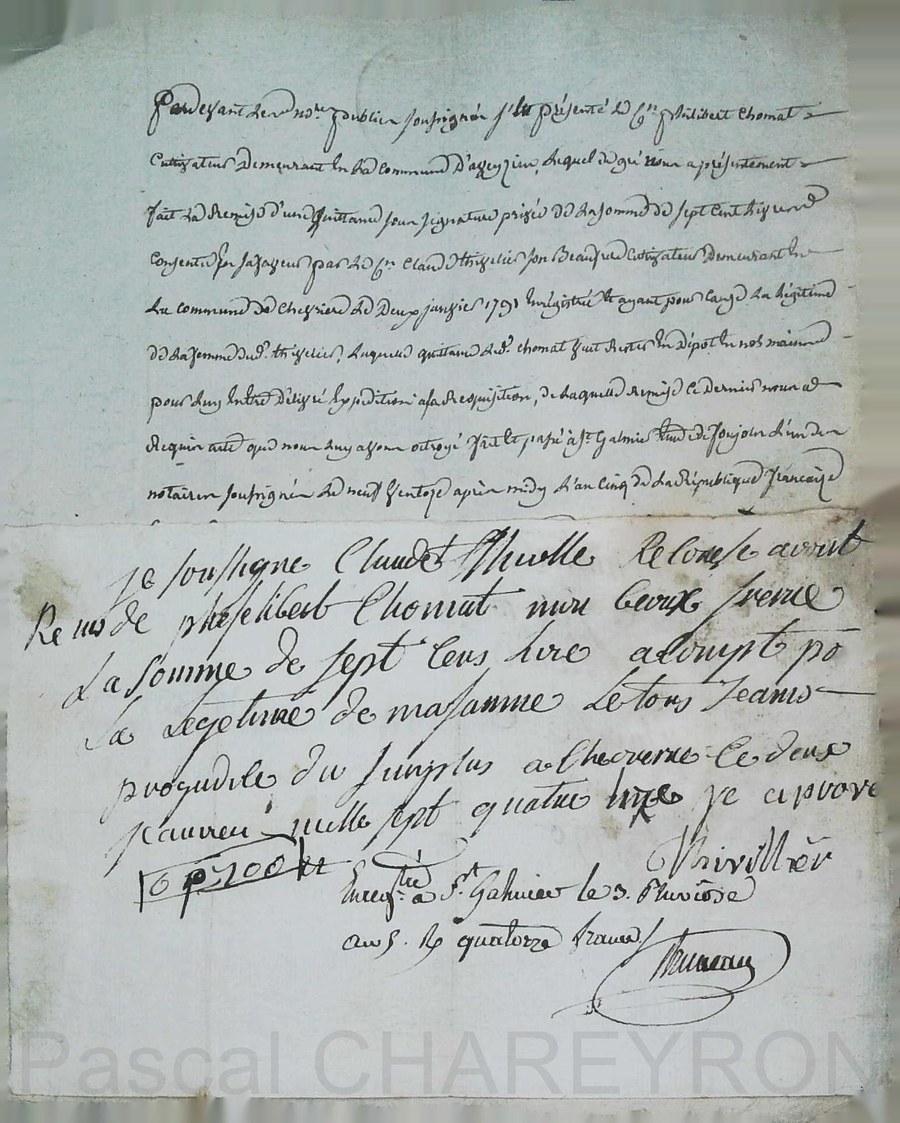 Pardevant les nores publics soussignés s'est présenté le Cen Philibert Chomat
Cultivateur demeurant en la commune d'aveyzieu, lequel de gré nous a présentement
fait la remise d'une quittance sous signature privée de la somme de sept cent livres
consentie en sa faveur par le Cen Claude thivelier son Beaufrere Cultivateur demeurant en
la commune de Chevriere le deux janvier 1791 enregistré et ayant pour cause la légitime
de la femme dud. thivelier, laquelle quittance led. chomat veut rester en dépot en nos mains
pour luy en etre délivré expedition a sa requisition, de laquelle remise ce dernier nous a
requis acte que nous luy avons octroyé fait et passé à St Galmier etude de Joujon l'un des
notaires soussignés le neuf ventose après midy l'an cinq de la république francaise
je soussigne Claude Reconese avoir
Resus de phelibert Chomat mon beaux frerre
La Somme de sept Cens Livre acompt po
La Legetime de ma famme Letous Seans
progudise du surplus a Cheverre Ce deux
janvieu mille sept quatre unze je aprove
p 700 tt thivillier
Enregtré a St Galmier le 3. Pluviose
an 5. R quatorze francs
Bruneau
Pascal CHAREYRON